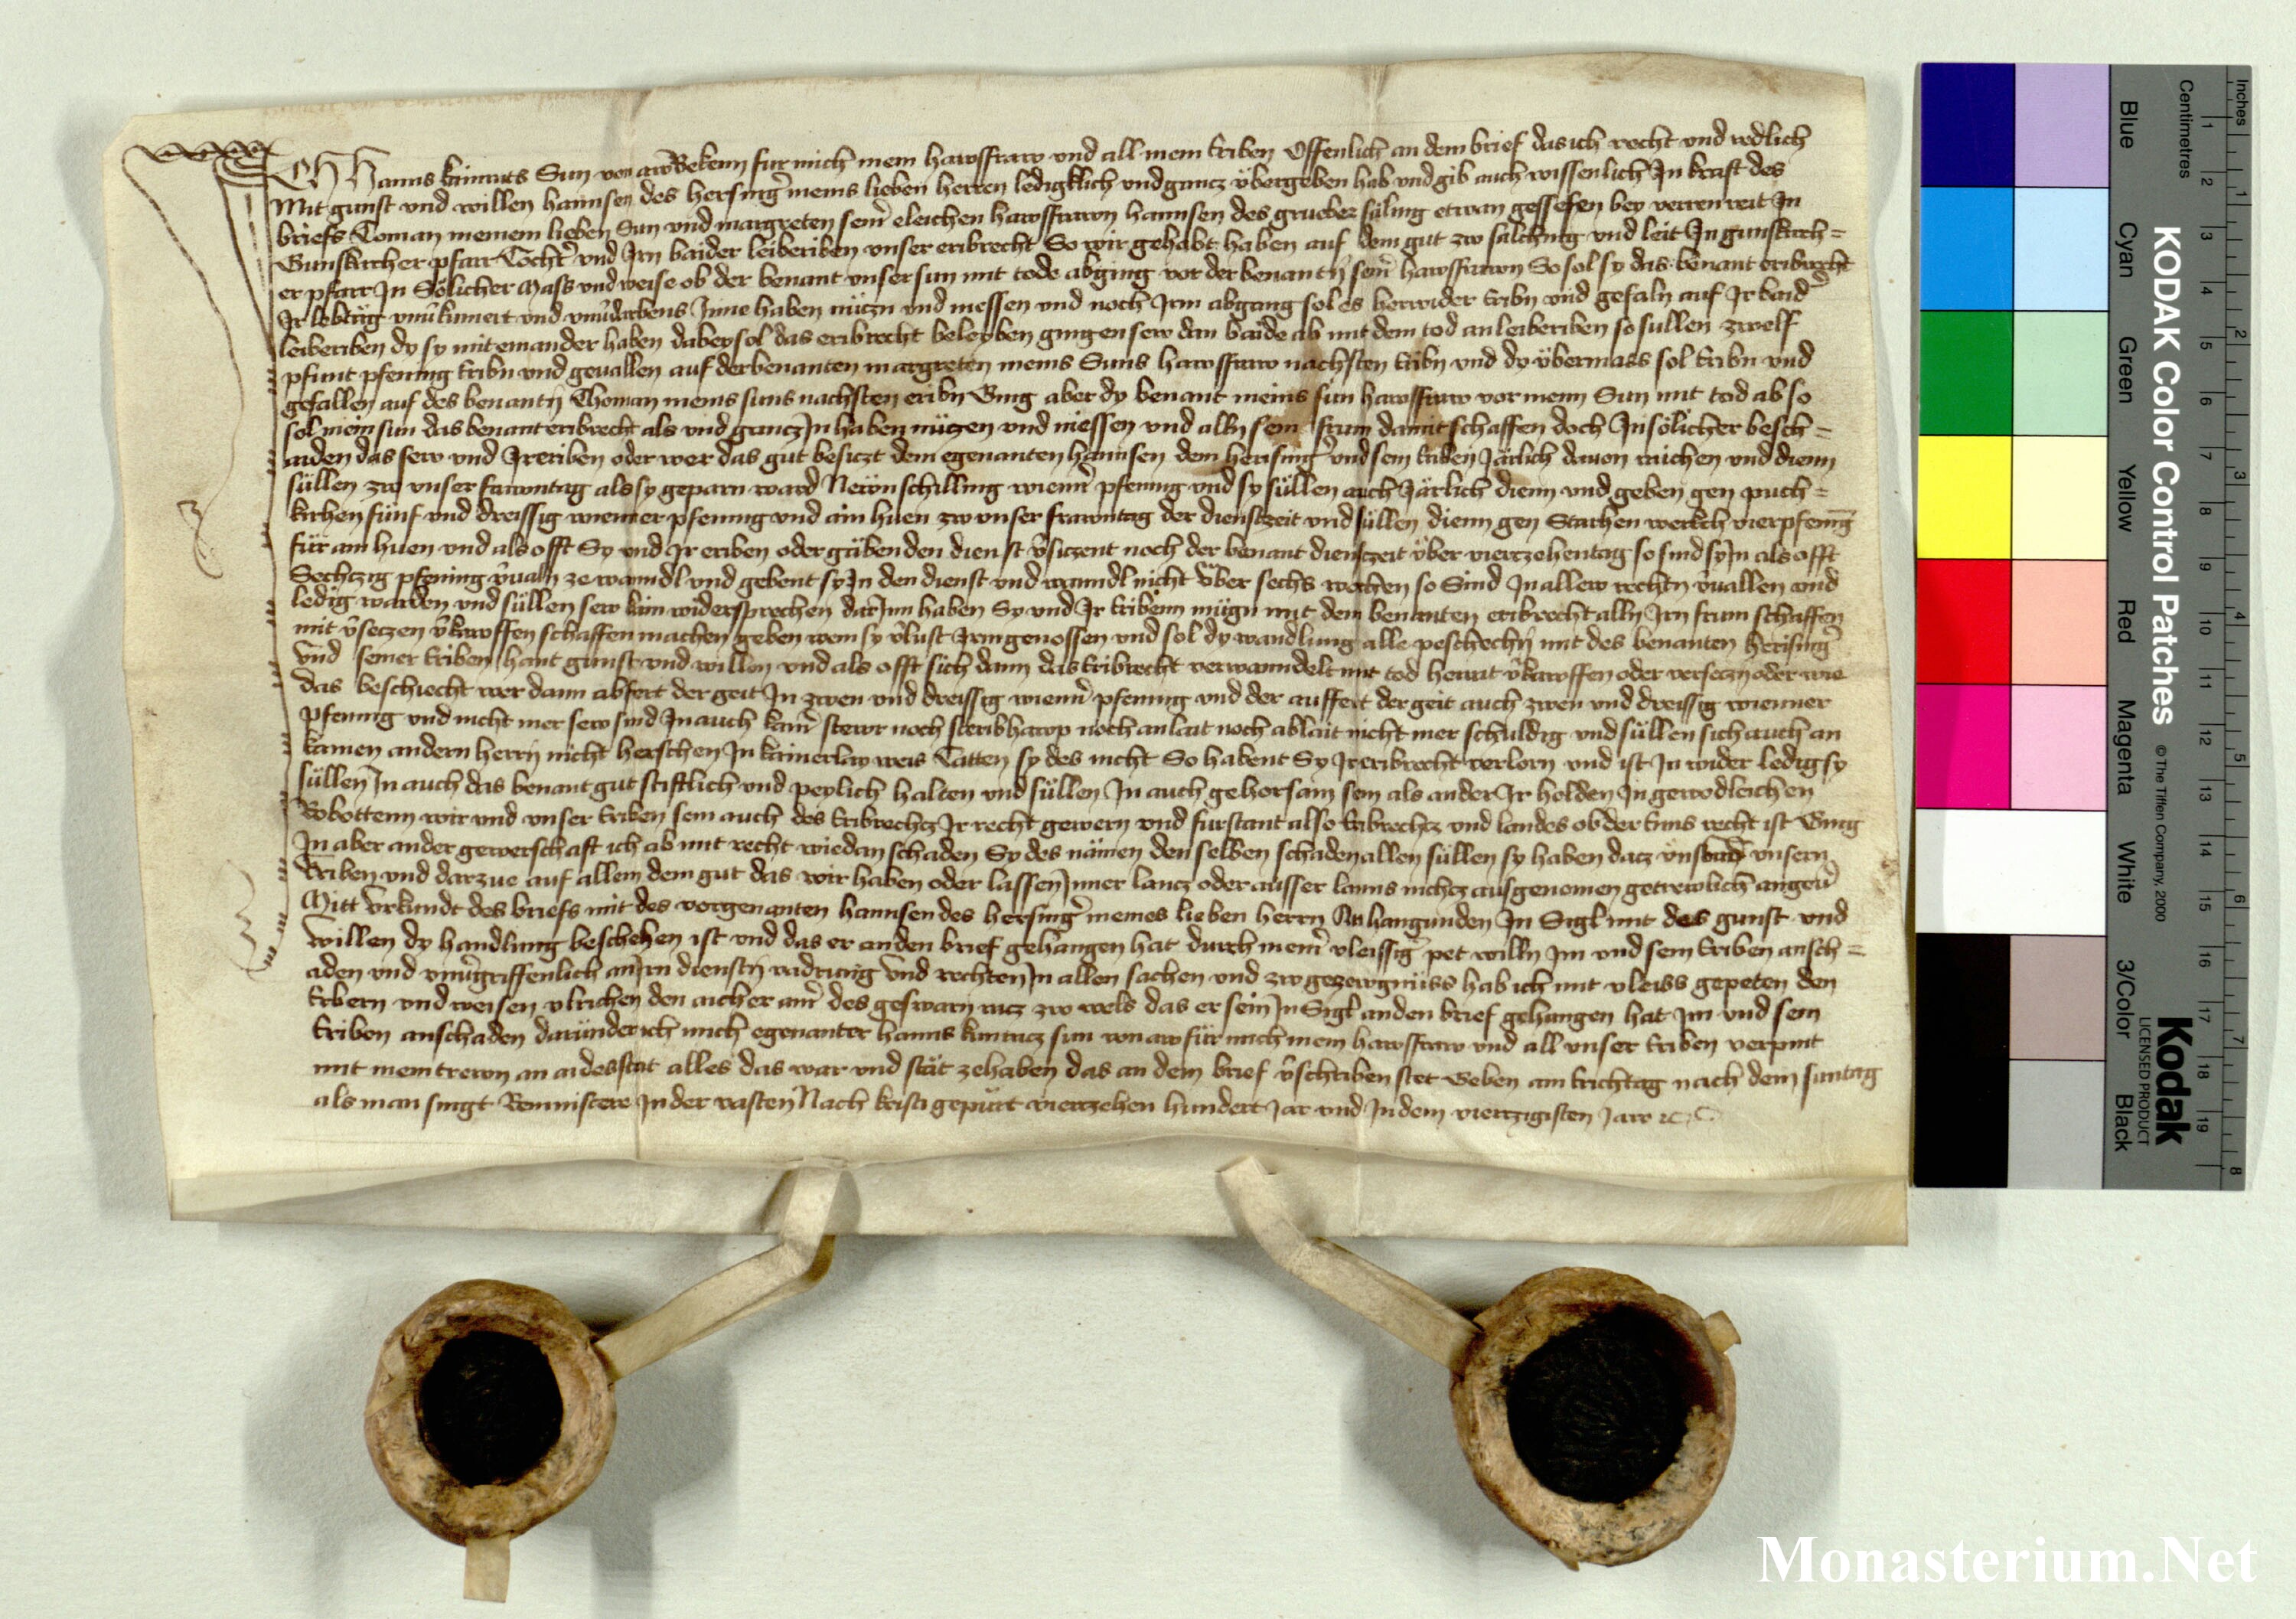 ICH Hanns kunrats Sun von aw Bekenn fur mich mein hawsfraw vnd all mein Eriben Offenlich an dem brief das ich recht vnd redlich
Mit gunst vnd willen hannsen des hersinger meins lieben herren ledigklich vnd gancz vbergeben hab vnd gib auch wissenlich In kraft des
briefs Toman meinem lieben Sun vnd margreten seiner eleichen hawsfrawn hannsen des grueber säling etwan gesessen bey
Gunskircher pfarr Tochter vnd Irn baider leiberiben vnser eribrecht So wir gehabt haben auf dem gut zw salching vnd leit In gunskirch=
er pfarr In Sölicher mass vnd weise ob der benant vnser sun mit tode abging vor der benanten seiner hawsfrawn So sol sy das benant eribrecht
Ir lebtäg vnd Inne haben nüczn vnd niessen vnd noch Irm abgang sol es herwider Eribn vnd gefaln auf Ir baider
leiberiben dy sy miteinander haben dabey sol das eribrecht beleyben gingen sew dan baide ab mit dem tod an leiberiben so sullen zwelf
pfunt pfening Eribn vnd geuallen auf der benanten margreten meins Suns hawsfraw nachsten Eribn vnd dy vbermass sol Eribn vnd
gefallen auf des benanten Thoman meins suns nachsten eribn Ging aber dy benant meins sun hawsfraw vor meinn Sun mit tod ab so
sol mein sun das benant eribrecht als vnd gancz In haben nüczen vnd niessen vnd alln sein frum damit schaffen doch In sölicher besch=
aiden das sew vnd Ir eriben oder wer das gut besiczt dem egenanten hannsen dem herisinger vnd sein Eriben Järlich dauon raichen vnd dienn
süllen zw vnser frawntag als sy geparn ward Newn schilling wienner pfening vnd sy süllen auch Järlich dienn vnd geben gen puch=
kirhen fünf vnd dreissig wienner pfening vnd ain huen zw vnser frawntag der dienstzeit vnd süllen dienn gen Starhenwerich vier pfening
für ain huen vnd als offt Sy vnd Ir eriben oder den dienst versiczent noch der benant dienstzeit vber vierczehentag so sind sy In als offt
Sechczig pfening veruain ze wanndl vnd gebent sy In den dienst vnd wanndl nicht vber sechs wochen so Sind In allew rechtn veruallen vnd
ledig warden vnd süllen sew kain widersprechen dar Inn haben Sy vnd Ir Eribenn mügn mit dem benanten eribrecht alln Irn frum schaffen
mit verseczen verkawffen schaffen machen geben wem sy verlust Irn genossen vnd sol dy wandlung alle peschechn mit des benanten herisinger
vnd seiner Eriben hant gunst vnd willen vnd als offt sich dann das Eribrecht verwanndelt mit tod heurat verkawffen oder verseczn oder wie
das beschiecht wer dann abfert der geit In zwen vnd dreissig wienner pfening vnd der auffert der geit auch zwen vnd dreissig wienner
pfening vnd nicht mer sew sind In auch kainer stewr noch steribhawp noch anlait noch ablait nicht mer schuldig vnd süllen sich auch an
kainen andern herrn nicht herschen In kainerlay weis Tätten sy des nicht So habent Sy Ir eribrecht verlorn vnd ist In wider ledig sy
süllen In auch das benant gut stiftlich vnd peylich halten vnd süllen In auch gehorsam sein als ander Ir holden In gewodleichen
Robottenn wir vnd vnser Eriben sein auch des Eribrechtz Ir recht gewern vnd furstant also Eribrechtz vnd landes ob der Enns recht ist Ging
In aber ander gewerschaft icht ab mit recht wie dan schaden Sy des nämen den selben schaden allen süllen sy haben dacz vns vnd vnsern
Eriben vnd darzue auf allem dem gut das wir haben oder lassen Inner lancz oder ausser lanns nichtz ausgenomen getrewlich angeuer
Mitt vrkundt des briefs mit des vorgenanten hannsen des hersinger meines lieben herrn Anhangunden In Sigl mit des gunst vnd
willen dy handlung beschehen ist vnd das er an den brief gehangen hat durch meiner vleissiger pet willn Im vnd sein Eriben ansch=
aden vnd vnuergriffenlich an Irn dienstn vadrung vnd rechten In allen sachen vnd zw gezewgnüss hab ich mit vleiss gepeten den
Erbern vnd weisen vlrichen den aicher ainer des geswarn racz zw wels das er sein In Sigl an den brief gehangen hat Im vnd sein
Eriben anschaden darunder ich mich egenanter hanns kunracz sun von aw für mich mein hawsfraw vnd all vnser Eriben verpint
mit mein trewn an aidesstat alles das war vnd stät zehaben das an dem brief verschriben stet Geben am Erichtag nach dem suntag
als man singt Reminiscere In der vasten Nach kristi gepurt vierzehen hundert Jar vnd In dem vierzigisten Jare
KODAK Color Control Patches
© The Tiffen Company, 2000
Kodak
LICENSED PRODUCT
Inches
Centimetres
Blue
Cyan
Green
Yellow
Red
Magenta
White
3/Color
Black
1 2 3 4 5 6 7 8 9 10 11 12 13 14 15 16 17 18 19
1 2 3 4 5 6 7 8
Monasterium.Net